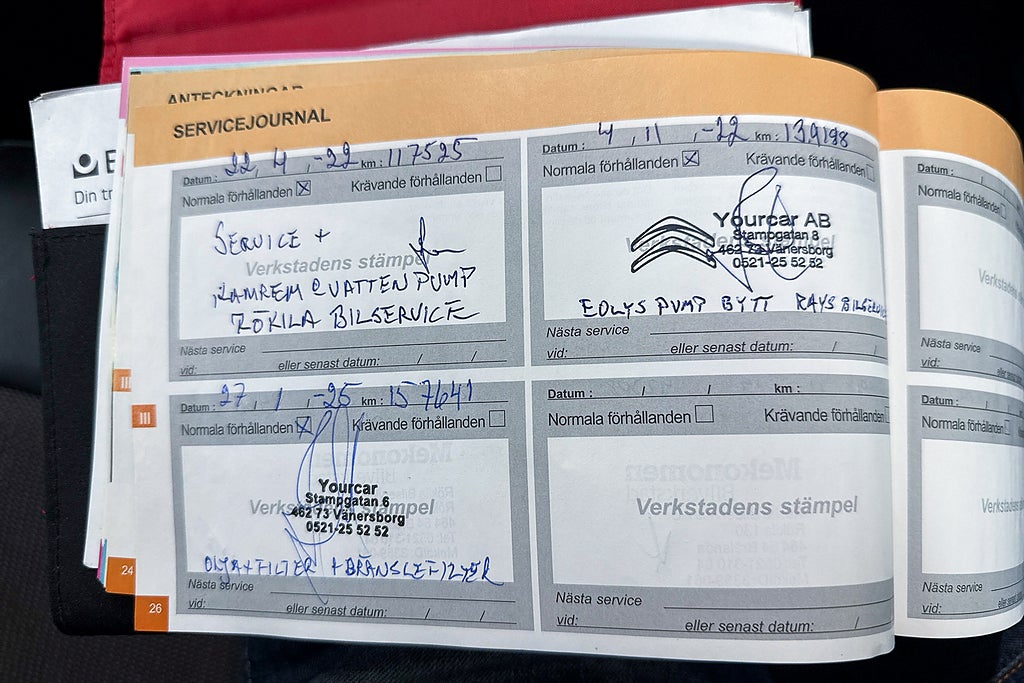 ANTECKNINGAR
SERVICEJOURNAL
Din tr
Datum : 22, 4 , -22 km : 117525
Normala förhållanden Krävande förhållanden
SERVICE +
Verkstadens stämpel
KAMREM & VATTEN PUMP
RÖKILA BILSERVICE
Nästa service
vid: eller senast datum: / /
Datum : 4 , 11 , -22 km : 139198
Normala förhållanden Krävande förhållanden
Yourcar AB
Stampgatan 8
Verkstadens stämpel
462 73 Vänersborg
0521-25 52 52
EOLYS PUMP BYTT RAYS BILSERV
Nästa service
vid: eller senast datum: / /
III
Datum : 27, 1 , -25 km : 157641
Normala förhållanden Krävande förhållanden
Yourcar
Stampgatan 6
Verkstadens stämpel
462 73 Vänersborg
0521-25 52 52
OLJA+FILTER + BRÄNSLEFILTER
Nästa service
vid: eller senast datum: / /
Datum : / / km :
Normala förhållanden Krävande förhållanden
Verkstadens stämpel
Nästa service
vid: eller senast datum: / /
24
26
Datum : / /
Normala förhållanden
Verkstadens
Nästa service
vid: eller senast
Datum : / /
Normala förhållanden
Verkstadens
Nästa service
vid: eller senast